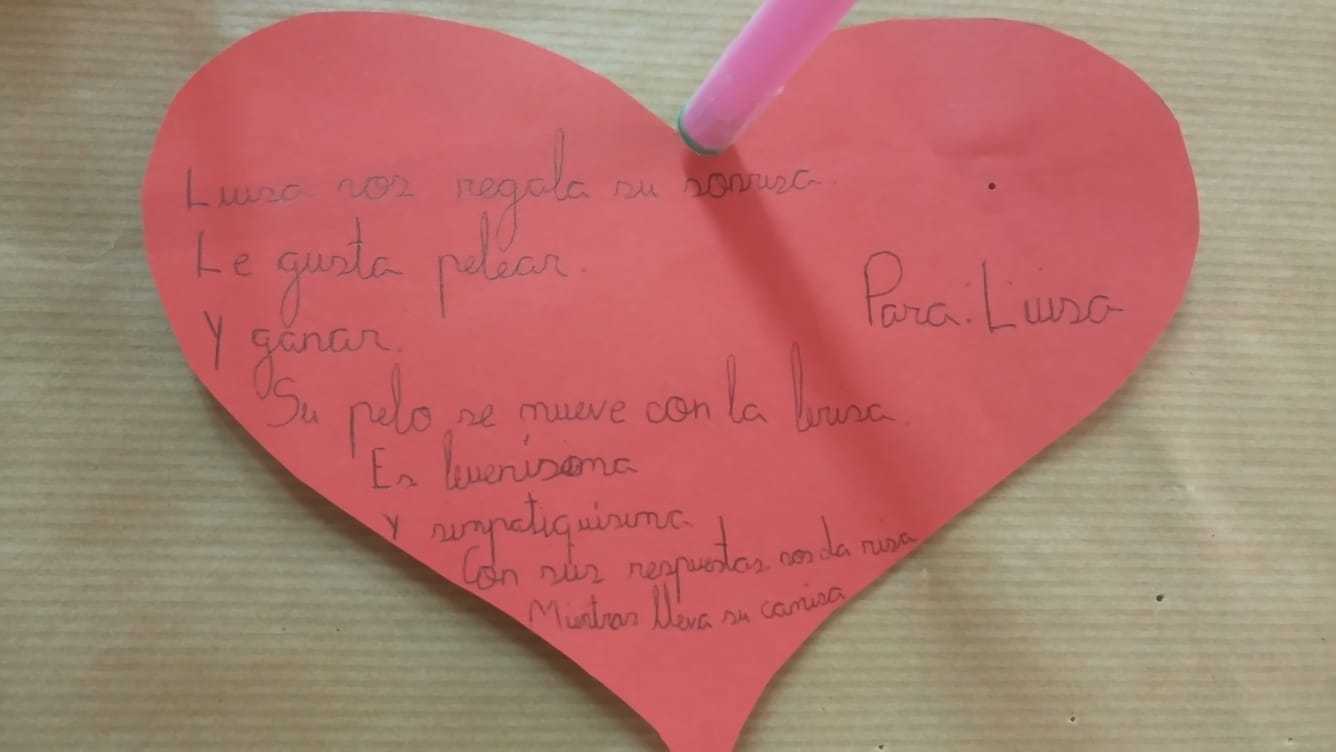 Luisa nos regala su sonrisa.
Le gusta pelear.
Y ganar.
Su pelo se mueve con la brisa.
Es buenísima
Y simpatiquísima
Con sus respuestas nos da risa
Mientras lleva su camisa
Para: Luisa